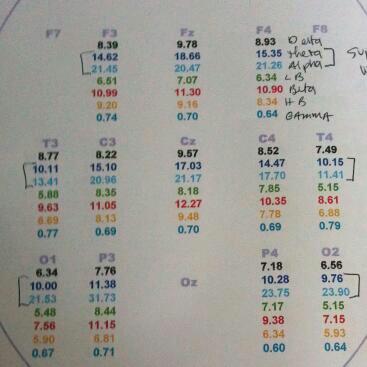 F7 F3 Fz F4 F8
8.39 9.78 8.93 Delta
14.62 18.66 15.35 Theta
21.45 20.47 21.26 Alpha
6.51 7.07 6.34 LB
10.99 11.30 10.90 Beta
9.20 9.16 8.34 HB
0.74 0.70 0.64 GAMMA
T3 C3 Cz C4 T4
8.77 8.22 9.57 8.52 7.49
10.11 15.10 17.03 14.47 10.15
13.41 20.96 21.17 17.70 11.41
5.88 8.35 8.18 7.85 5.15
9.63 11.05 12.27 10.35 8.61
6.69 8.13 9.48 7.78 6.88
0.77 0.69 0.70 0.69 0.79
O1 P3 Oz P4 O2
6.34 7.76 7.18 6.56
10.00 11.38 10.28 9.76
21.53 31.73 23.75 23.90
5.48 8.44 7.17 5.15
7.56 11.15 9.38 7.15
5.90 6.81 6.34 5.93
0.67 0.71 0.60 0.64